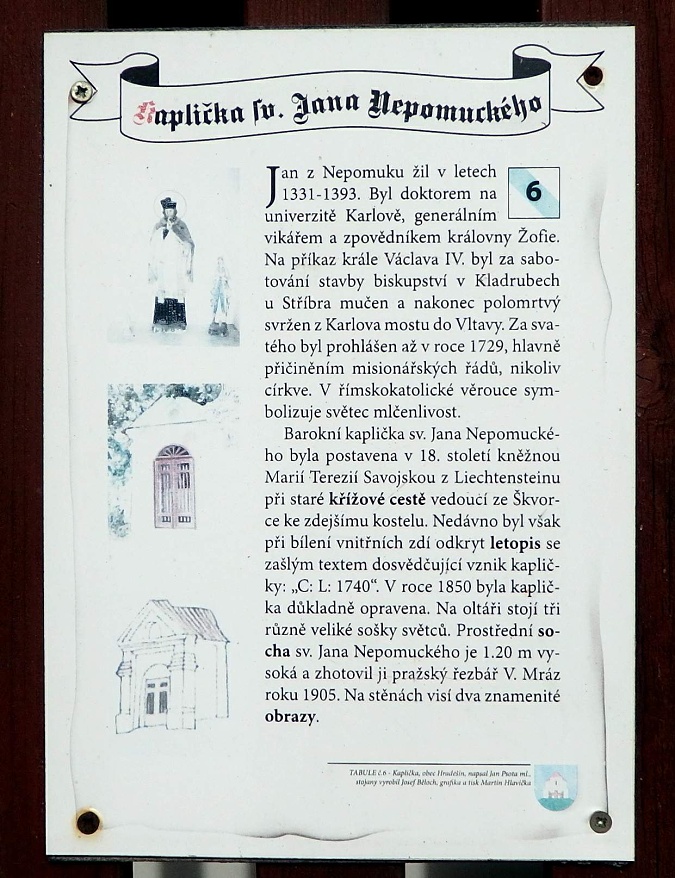 Kaplička sv. Jana Nepomuckého
6
Jan z Nepomuku žil v letech
1331-1393. Byl doktorem na
univerzitě Karlově, generálním
vikářem a zpovědníkem královny Žofie.
Na příkaz krále Václava IV. byl za sabo-
tování stavby biskupství v Kladrubech
u Stříbra mučen a nakonec polomrtvý
svržen z Karlova mostu do Vltavy. Za sva-
tého byl prohlášen až v roce 1729, hlavně
přičiněním misionářských řádů, nikoliv
církve. V římskokatolické věrouce sym-
bolizuje světec mlčenlivost.
Barokní kaplička sv. Jana Nepomucké-
ho byla postavena v 18. století kněžnou
Marií Terezií Savojskou z Liechtensteinu
při staré křížové cestě vedoucí ze Škvor-
ce ke zdejšímu kostelu. Nedávno byl však
při bílení vnitřních zdí odkryt letopis se
zašlým textem dosvědčující vznik kaplič-
ky: „C: L: 1740“. V roce 1850 byla kaplič-
ka důkladně opravena. Na oltáři stojí tři
různě veliké sošky světců. Prostřední so-
cha sv. Jana Nepomuckého je 1.20 m vy-
soká a zhotovil ji pražský řezbář V. Mráz
roku 1905. Na stěnách visí dva znamenité
obrazy.
TABULE č.6 - Kaplička, obec Hradešín, napsal Jan Psota ml.,
stojany vyrobil Josef Běloch, grafika a tisk Martin Hlavička